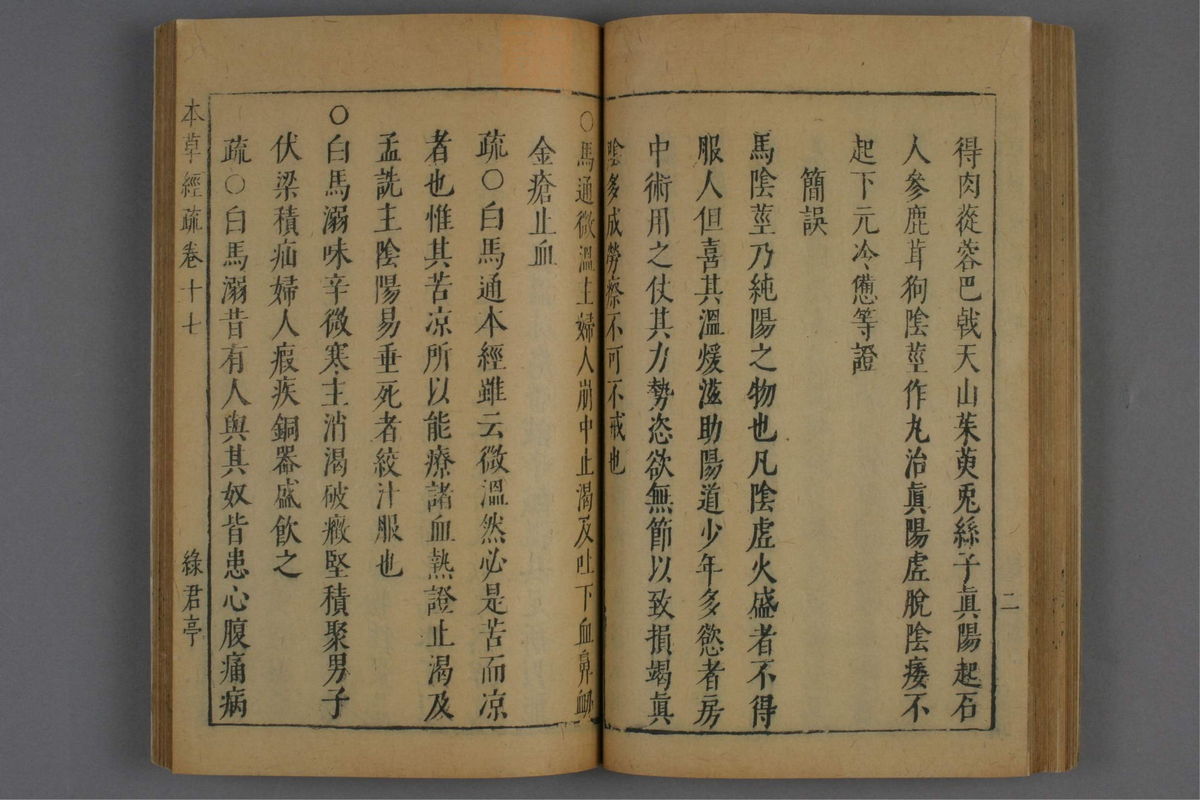 得肉蓯蓉巴戟天山茱萸兎絲子眞陽起石
人參鹿茸狗陰莖作丸治眞陽虛脫陰痿不
起下元冷憊等證
簡誤
馬陰莖乃純陽之物也凡陰虛火盛者不得
服人但喜其溫煖滋助陽道少年多慾者房
中術用之仗其力勢恣欲無節以致損竭眞
陰多成勞瘵不可不戒也
二
○馬通微溫主婦人崩中止渴及吐下血鼻衂
金瘡止血
疏○白馬通本經雖云微溫然必是苦而凉
者也惟其苦凉所以能療諸血熱證止渴及
孟詵主陰陽易垂死者絞汁服也
○白馬溺味辛微寒主消渴破癥堅積聚男子
伏梁積疝婦人瘕疾銅器盛飮之
疏○白馬溺昔有人與其奴皆患心腹痛病
本草經疏卷十七
綠君亭